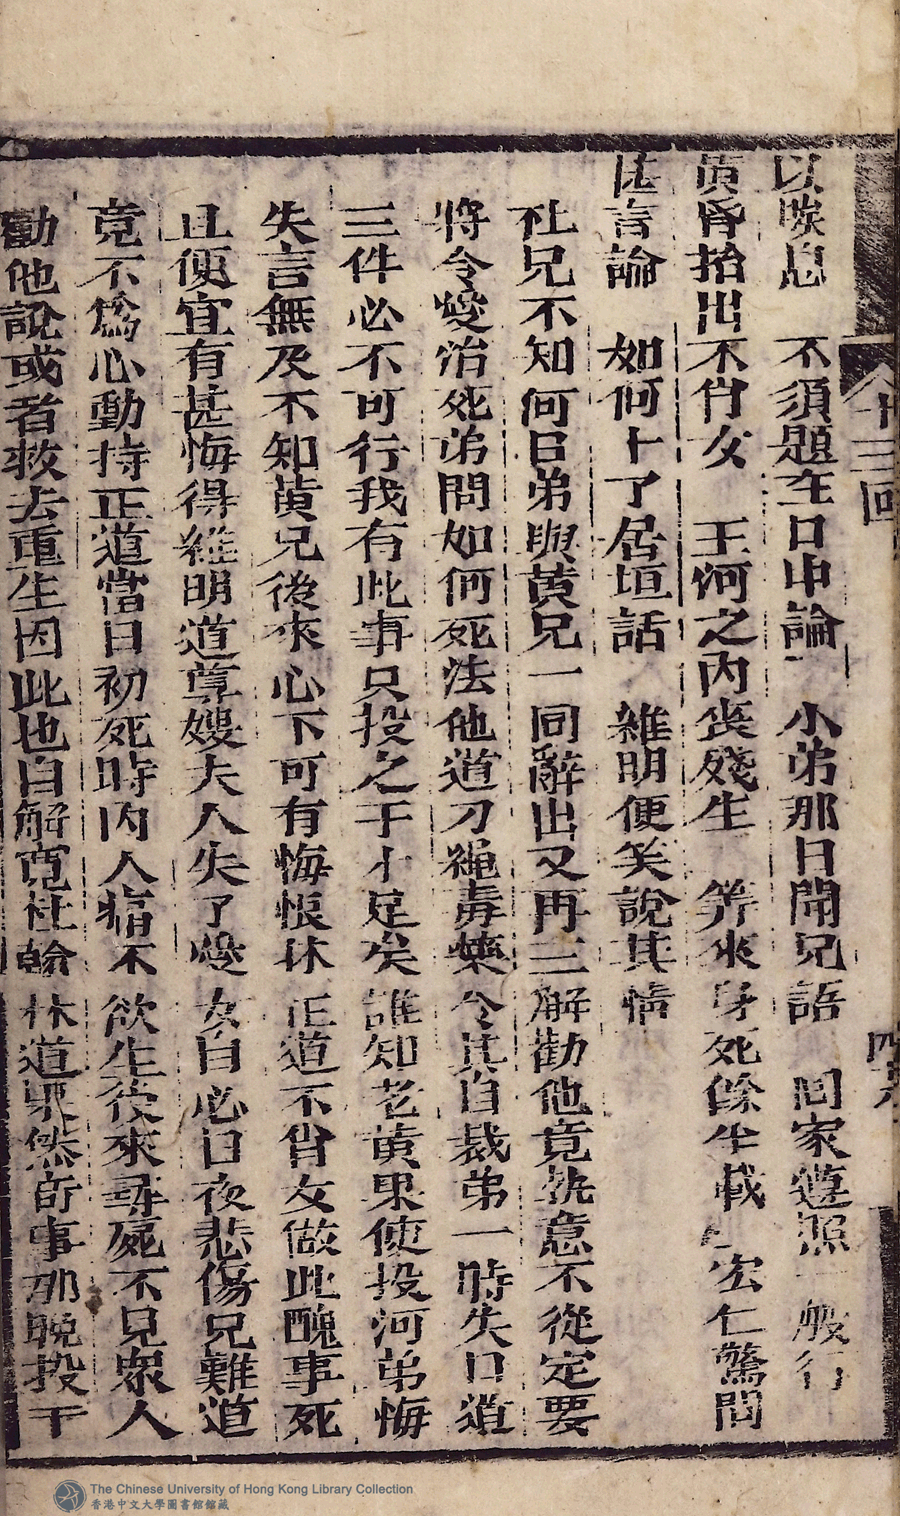 以唉息　不須題在口中論　小弟那日聞兄語　回家遵照一般行
黃昏抬出不肖女　玉河之內喪殘生　筭來身死餘半載　宏仁驚問
甚言論　如何十了居垣話　維明便笑說其情
社兄不知何日弟與黃兄一同辭出又再三解勸他竟執意不從定要
將令愛治死弟問如何死法他道刀繩毒藥令其自裁弟一時失口道
三件必不可行我有此事只投之于水足矣誰知老黃果使投河弟悔
失言無及不知黃兄後來心下可有悔恨林正道不肖女做此醜事死
且便宜有甚悔得維明道尊嫂夫人失了愛女自必日夜悲傷兄難道
竟不爲心動持正道當日初死時內人痛不欲生後來尋屍不見眾人
勸他說或者救去重生因此也自解寬杜翰林道果然奇事那晚投于
十三回
香港中文大學圖書館館藏
The Chinese University of Hong Kong Library Collection